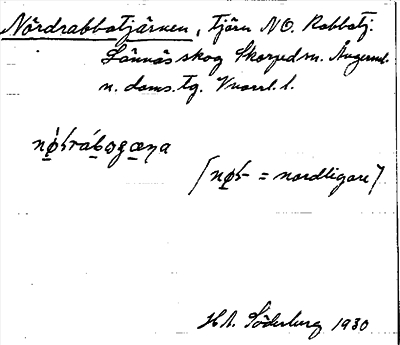 Nördrabbatjärnen, tjärn NO. Rabbatj.
Lännäs skog Skorped sn. Ångerml.
n. doms.tg. Vnorrl. l.
nø̀ʃrábᴐgæna
[nøʃ- = nordligare]
H.A. Söderberg 1930